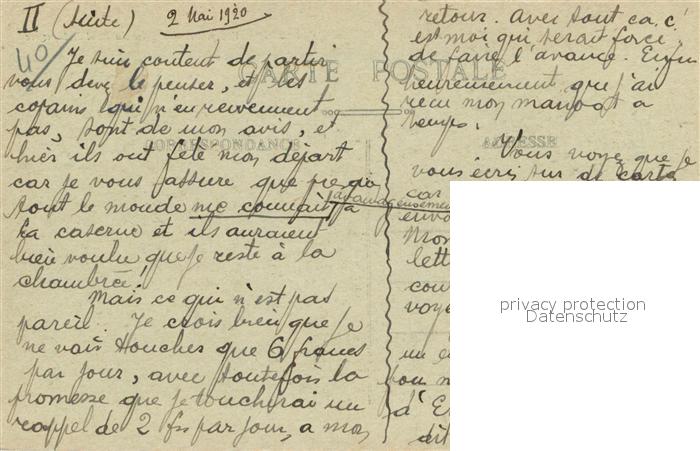 II (Suite) 2 Mai 1920
40
CARTE POSTALE
CORRESPONDANCE
ADRESSE
Je suis content de partir
vous devez le penser, et les
copains qui n'en reviennent
pas, sont de mon avis, et
hier ils ont fêté mon départ
car je vous assure que presque
tout le monde me connait à
avantageusement
la caserne et ils auraient
bien voulu que je reste à la
chambrée!
Mais ce qui n'est pas
pareil. Je crois bien que je
ne vais toucher que 6 francs
par jour, avec toutefois la
promesse que je toucherai un
rappel de 2 frs par jour, a mon
retour. Avec tout ca, c'
est moi qui serait forcé
de faire l'avance. Enfin
heureusement que j'ai
recu mon mandat a
temps.
Vous voyez que je
vous écris sur de carte
car
envo
Mon
lett
cou
voye
un
bon
d'E
dit
privacy protection
Datenschutz